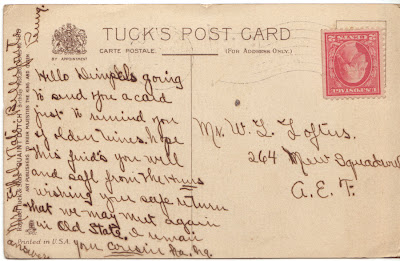 TUCK'S POST CARD
CARTE POSTALE.
(FOR ADDRESS ONLY.)
BY APPOINTMENT
Hello Dimples going
to send you a card
just to remind you
of olden times. hope
this finds you well
and safe from the Huns
wishing you safe return
that we may meet again
in Old State. I remain
your cousin
Printed in U.S.A.
answer
Mr. W. L. Loftus.
264 Aero Squadron
A.E.F.